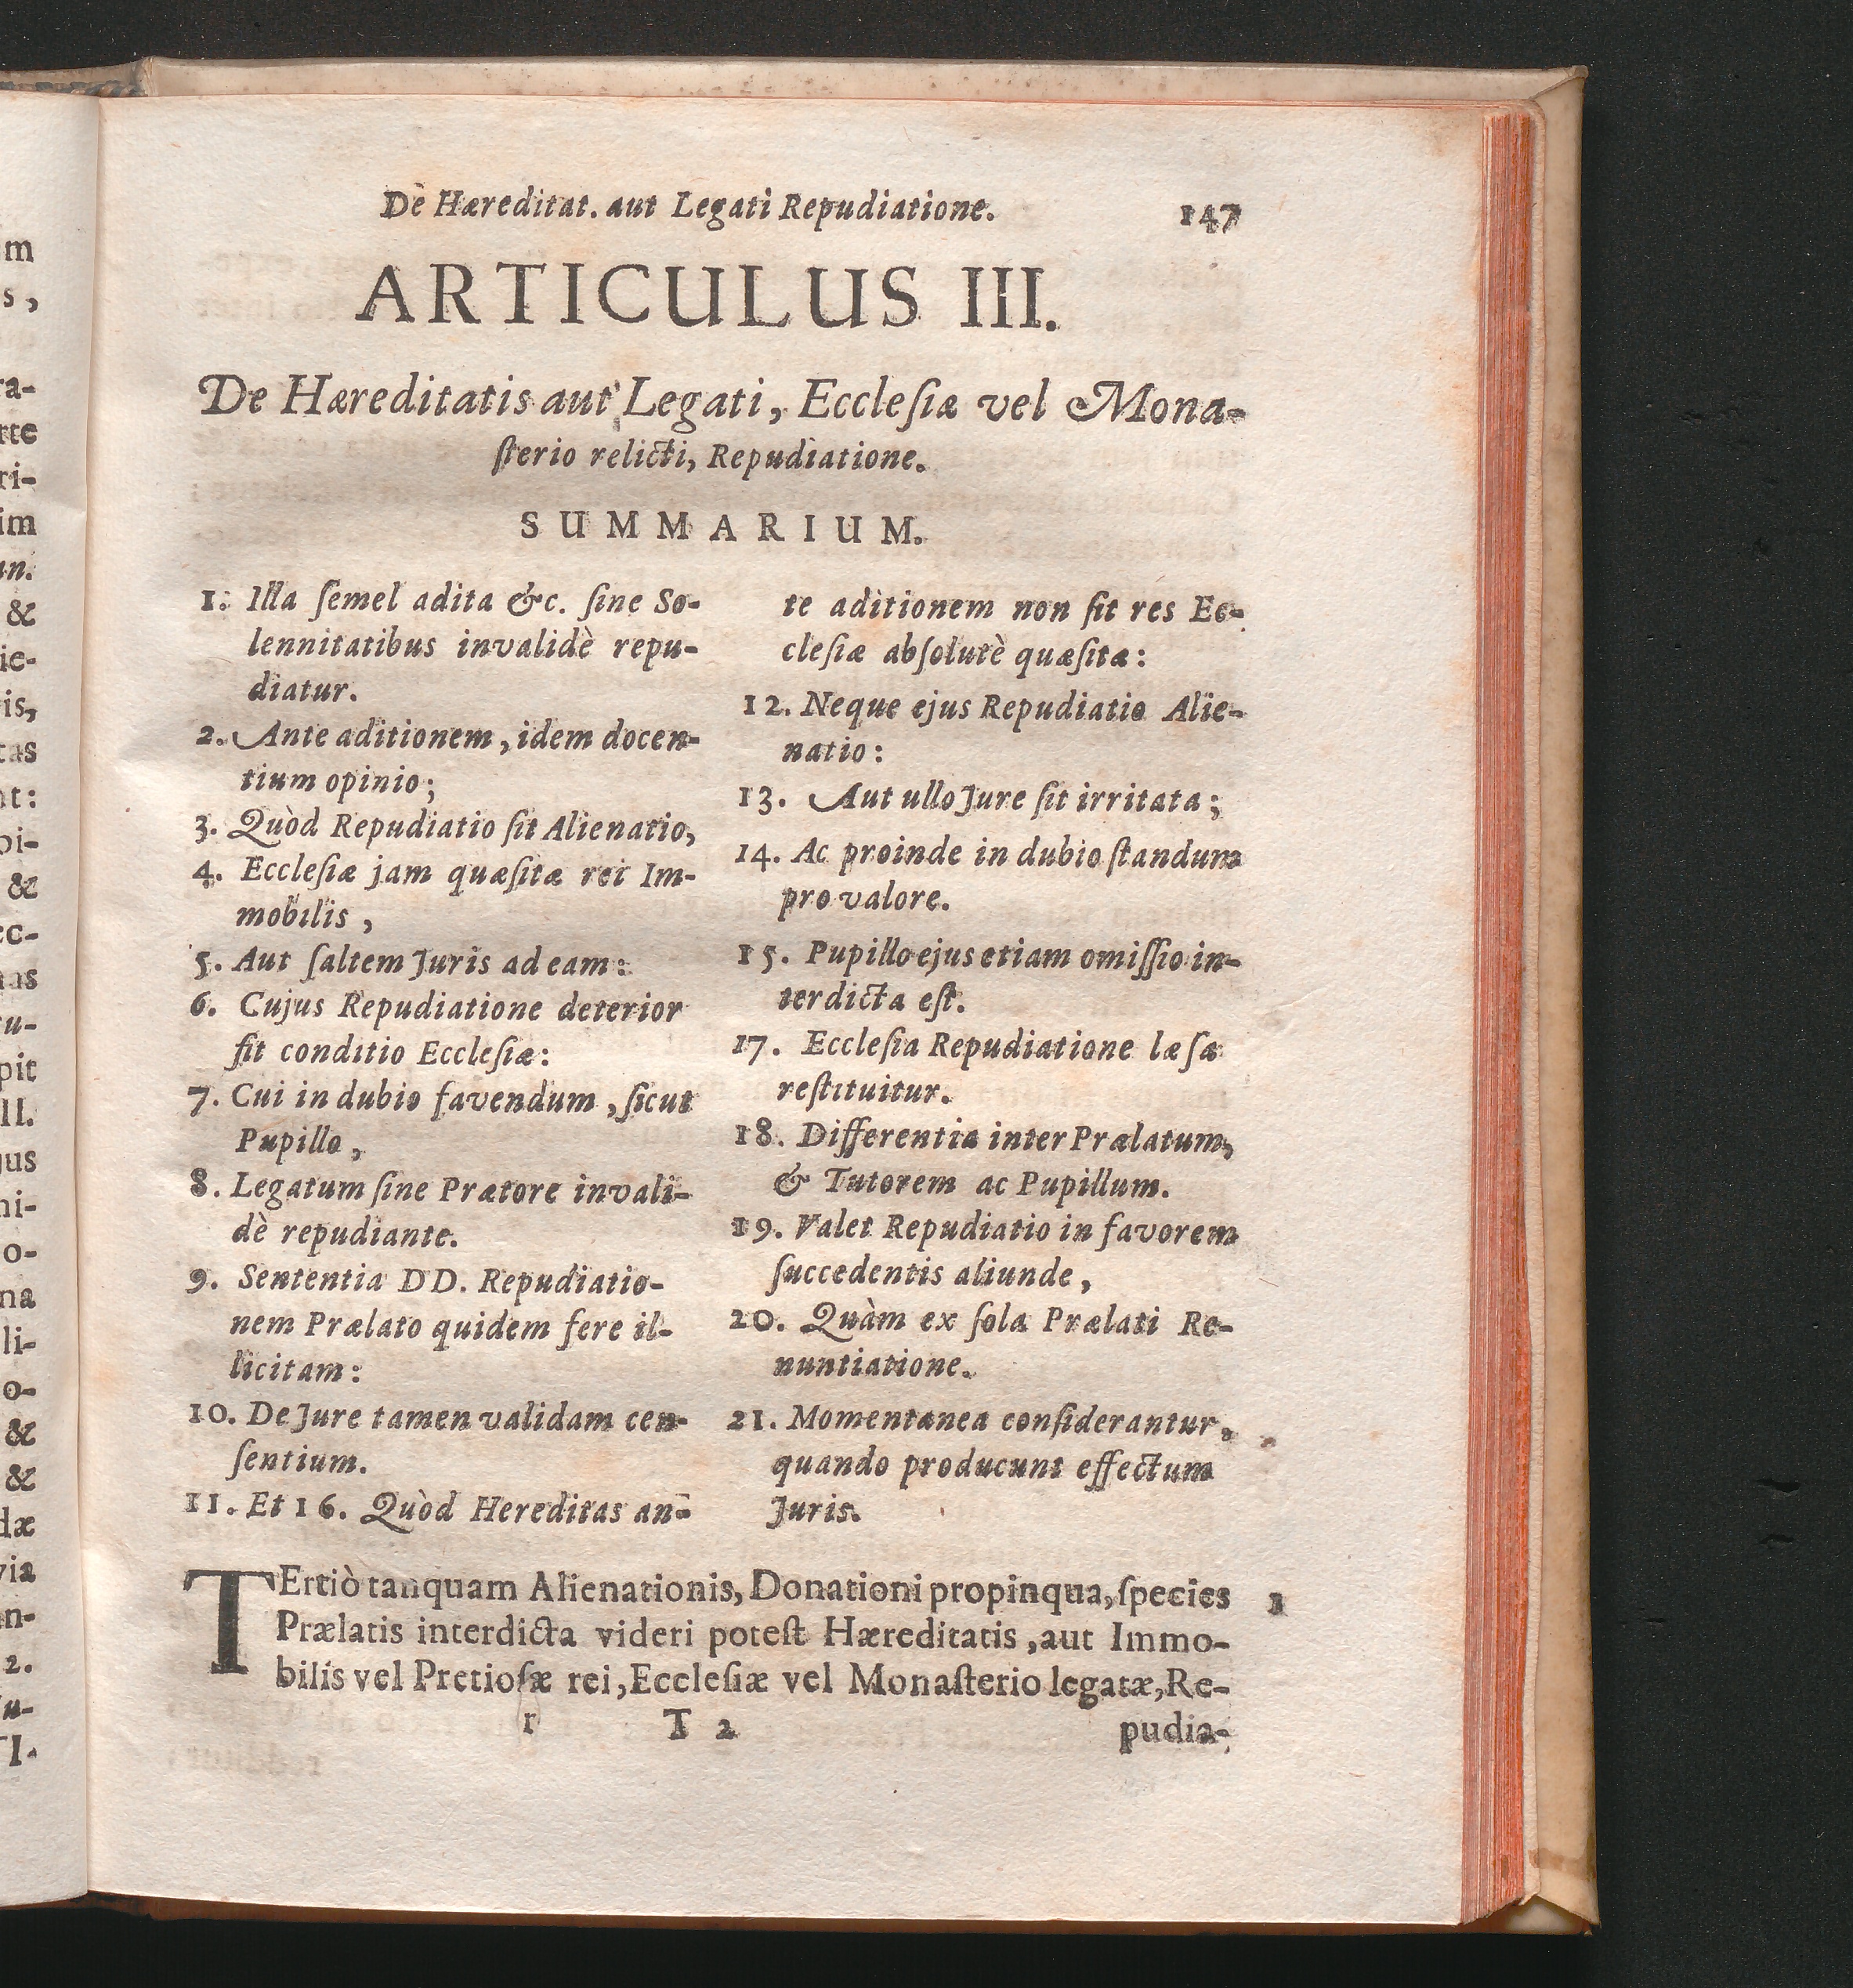 De Hæreditat. aut Legati Repudiatione. 147
ARTICULUS III.
De Hæreditatis aut Legati, Ecclesiæ vel Mona-
sterio relicti, Repudiatione.
SUMMARIUM.
1. Illa semel adita &c. sine So-
lennitatibus invalidè repu-
diatur.
2. Ante aditionem, idem docen-
tium opinio;
3. Quòd Repudiatio sit Alienatio,
4. Ecclesiæ jam quæsitæ rei Im-
mobilis,
5. Aut saltem Juris ad eam:
6. Cujus Repudiatione deterior
fit conditio Ecclesiæ:
7. Cui in dubio favendum, sicut
Pupillo,
8. Legatum sine Prætore invali-
dè repudiante.
9. Sententia DD. Repudiatio-
nem Prælato quidem fere il-
licitam:
10. De Jure tamen validam cen-
sentium.
11. Et 16. Quòd Hereditas an-
te aditionem non sit res Ec-
clesiæ absolutè quæsita:
12. Neque ejus Repudiatio Alie-
natio:
13. Aut ullo Jure sit irritata;
14. Ac proinde in dubio standum
pro valore.
15. Pupillo ejus etiam omissio in-
terdicta est.
17. Ecclesia Repudiatione læsa
restituitur.
18. Differentia inter Prælatum,
& Tutorem ac Pupillum.
19. Valet Repudiatio in favorem
succedentis aliunde,
20. Quàm ex sola Prælati Re-
nuntiatione.
21. Momentanea considerantur,
quando producunt effectum
Juris.
TErtiò tanquam Alienationis, Donationi propinqua, species 1
Prælatis interdicta videri potest Hæreditatis, aut Immo-
bilis vel Pretiosæ rei, Ecclesiæ vel Monasterio legatæ, Re-
r T 2 pudia-